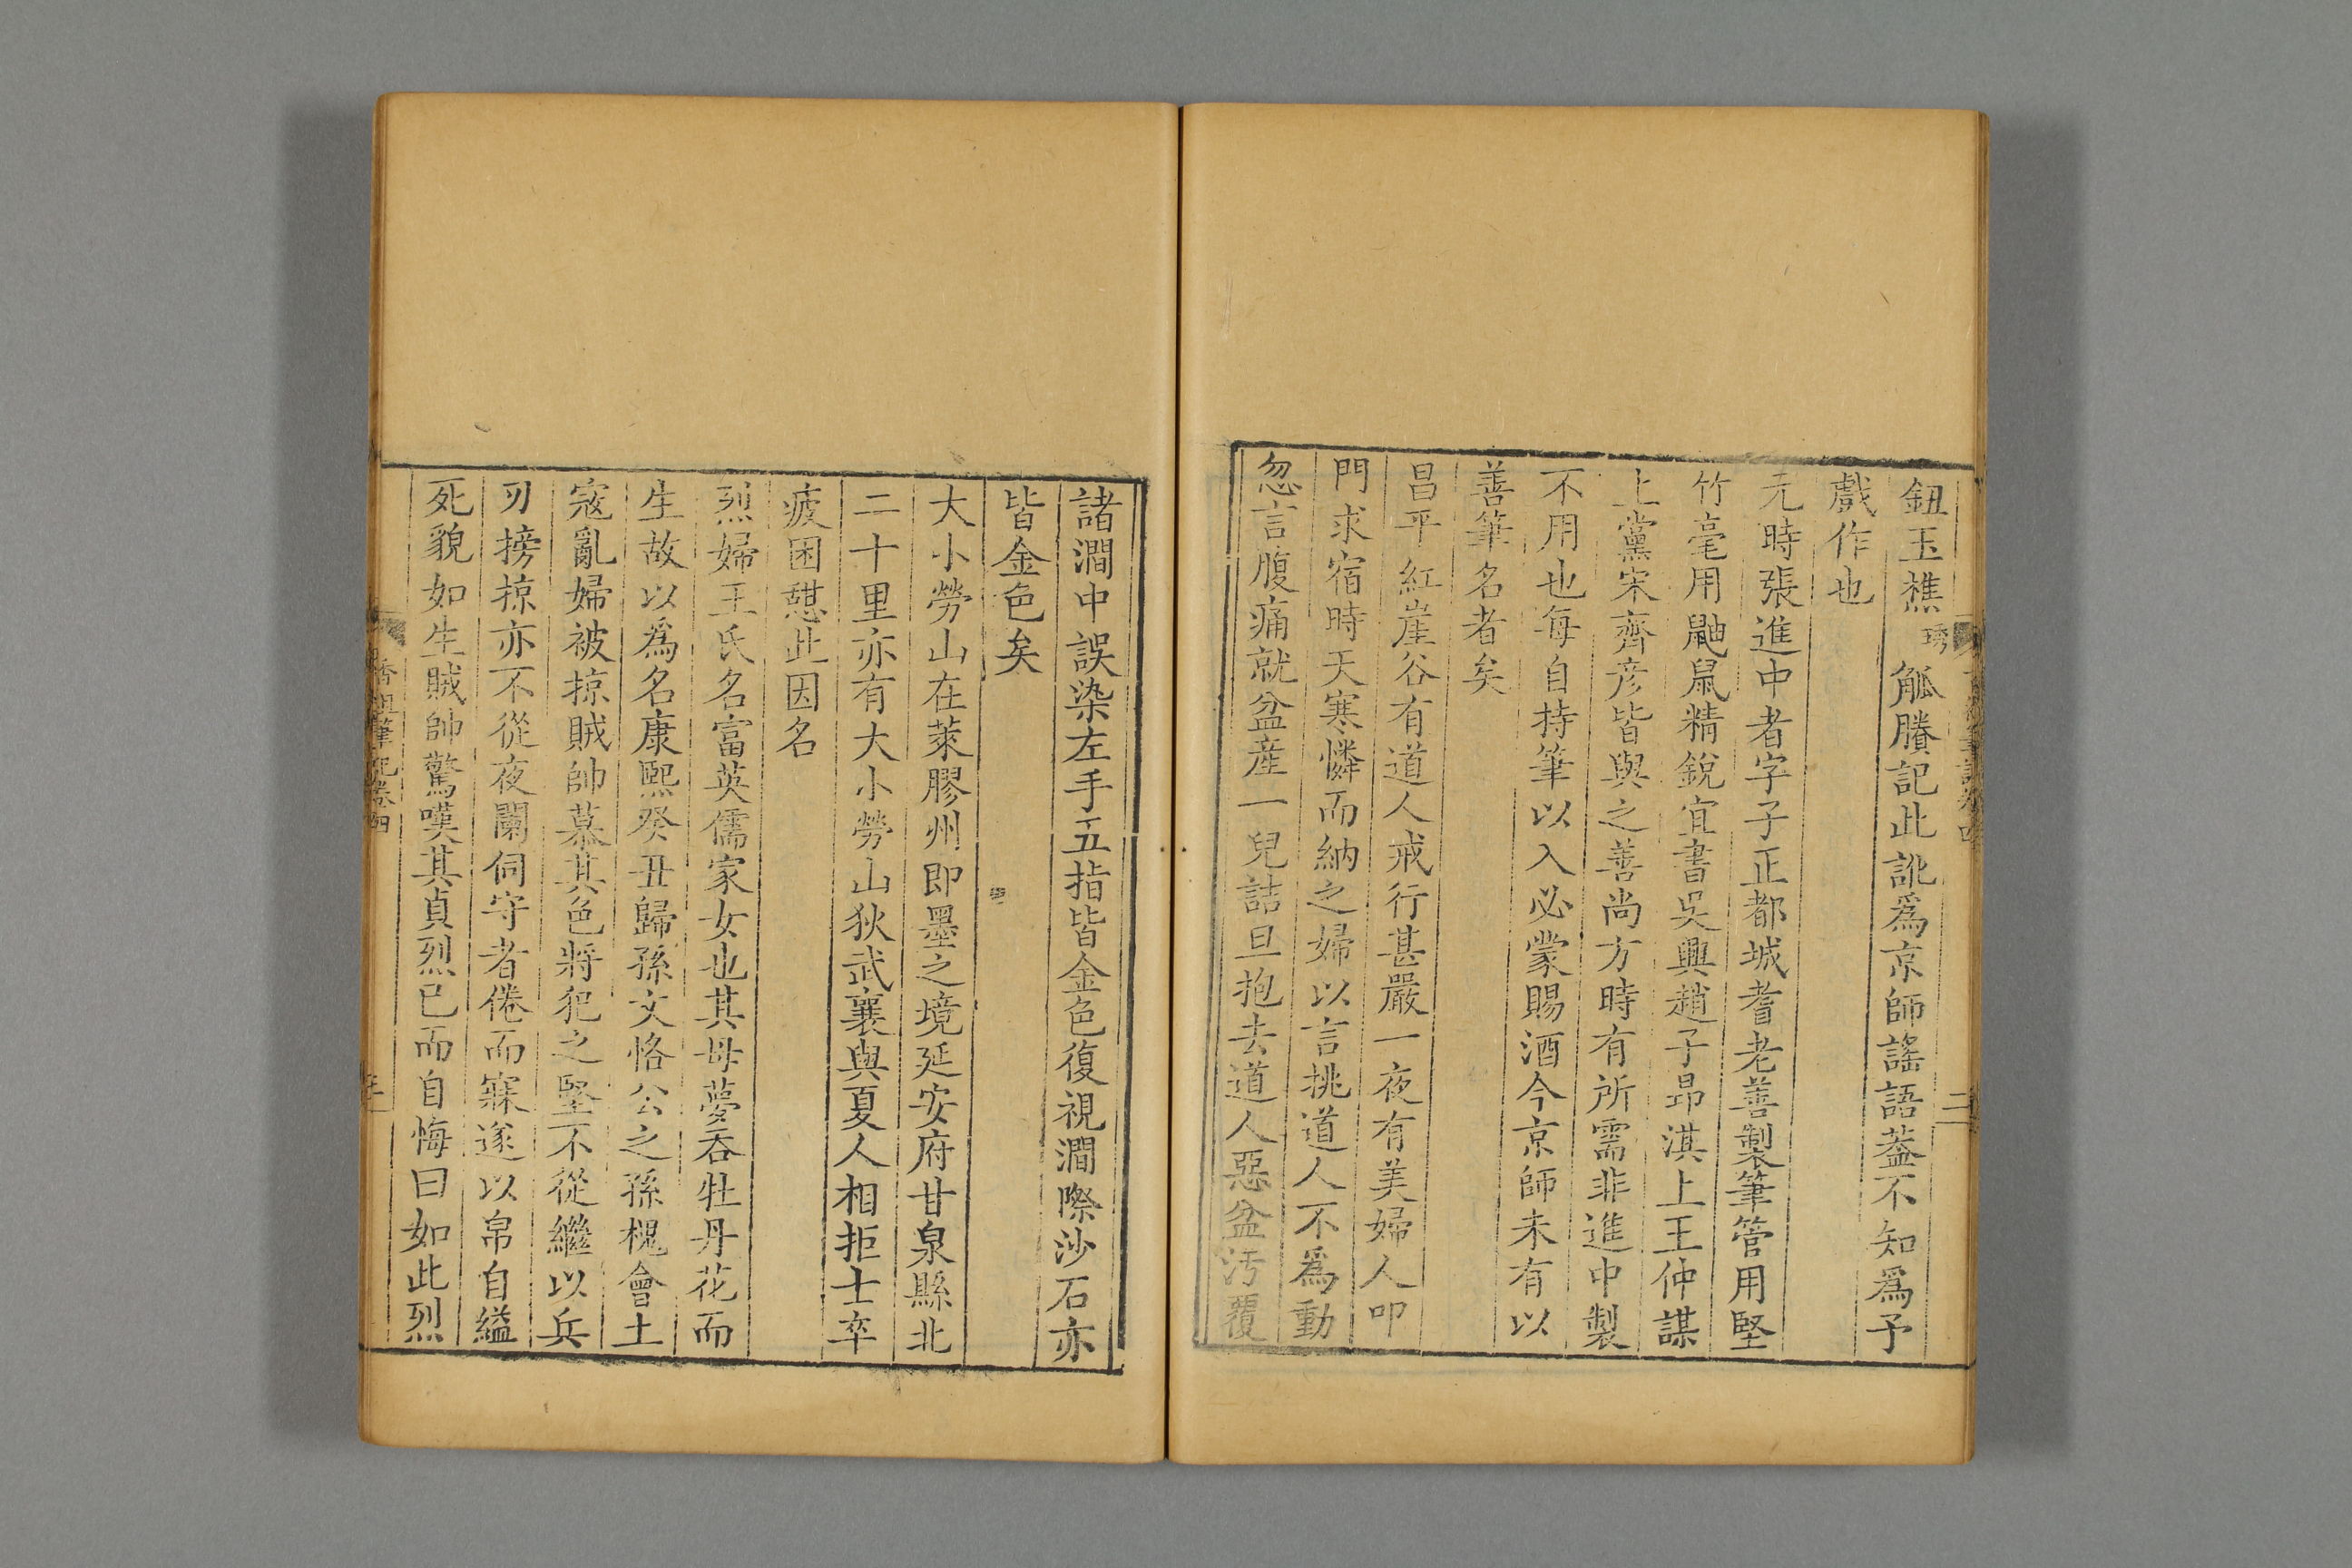 鈕玉樵琇觚賸記此訛爲京師謠語葢不知爲予
戲作也
元時張進中者字子正都城耆老善製筆管用堅
竹毫用鼬鼠精銳宜書吳興趙子昻淇上王仲謀
上黨宋齊彦皆與之善尚方時有所需非進中製
不用也每自持筆以入必蒙賜酒今京師未有以
善筆名者矣
昌平紅崖谷有道人戒行甚嚴一夜有美婦人叩
門求宿時天寒憐而納之婦以言挑道人不爲動
忽言腹痛就盆産一兒詰旦抱去道人惡盆汚覆
諸澗中誤染左手五指皆金色復視澗際沙石亦
皆金色矣
大小勞山在萊膠州即墨之境延安府甘泉縣北
二十里亦有大小勞山狄武襄與夏人相拒士卒
疲困憇此因名
烈婦王氏名富英儒家女也其母夢呑牡丹花而
生故以爲名康熙癸丑歸孫文恪公之孫槐會土
寇亂婦被掠賊帥慕其色將犯之堅不從繼以兵
刃搒掠亦不從夜闌伺守者倦而寐遂以帛自縊
死貌如生賊帥驚嘆其貞烈已而自悔曰如此烈
香祖筆記卷四